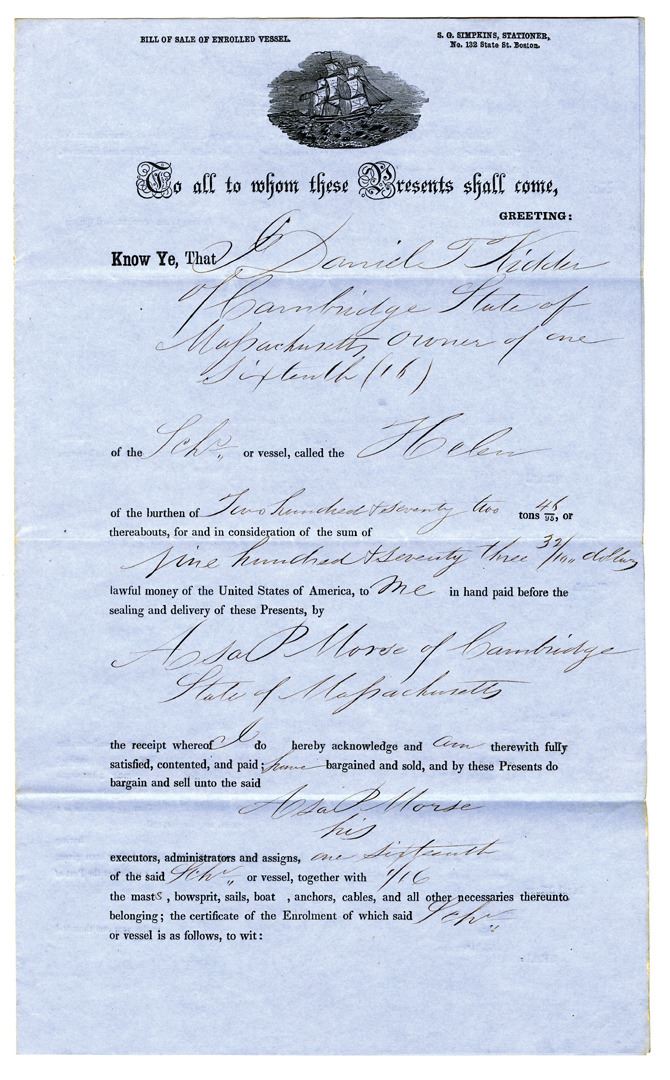 BILL OF SALE OF ENROLLED VESSEL.
S. G. SIMPKINS, STATIONER,
No. 132 State St. Boston.
To all to whom these Presents shall come,
GREETING:
Know Ye, That I Daniel T Kidder
of Cambridge State of
Massachusetts owner of one
Sixteenth (16)
of the Schr. or vessel, called the Helen
of the burthen of Two hundred & seventy two tons 46/95, or
thereabouts, for and in consideration of the sum of
Nine hundred & seventy three 32/100 dollars
lawful money of the United States of America, to me in hand paid before the
sealing and delivery of these Presents, by
Asa P Morse of Cambridge
State of Massachusetts
the receipt whereof I do hereby acknowledge and am therewith fully
satisfied, contented, and paid; have bargained and sold, and by these Presents do
bargain and sell unto the said
Asa P Morse
his
executors, administrators and assigns, one sixteenth
of the said Schr. or vessel, together with 1/16
the masts, bowsprit, sails, boat , anchors, cables, and all other necessaries thereunto
belonging; the certificate of the Enrolment of which said Schr.
or vessel is as follows, to wit: